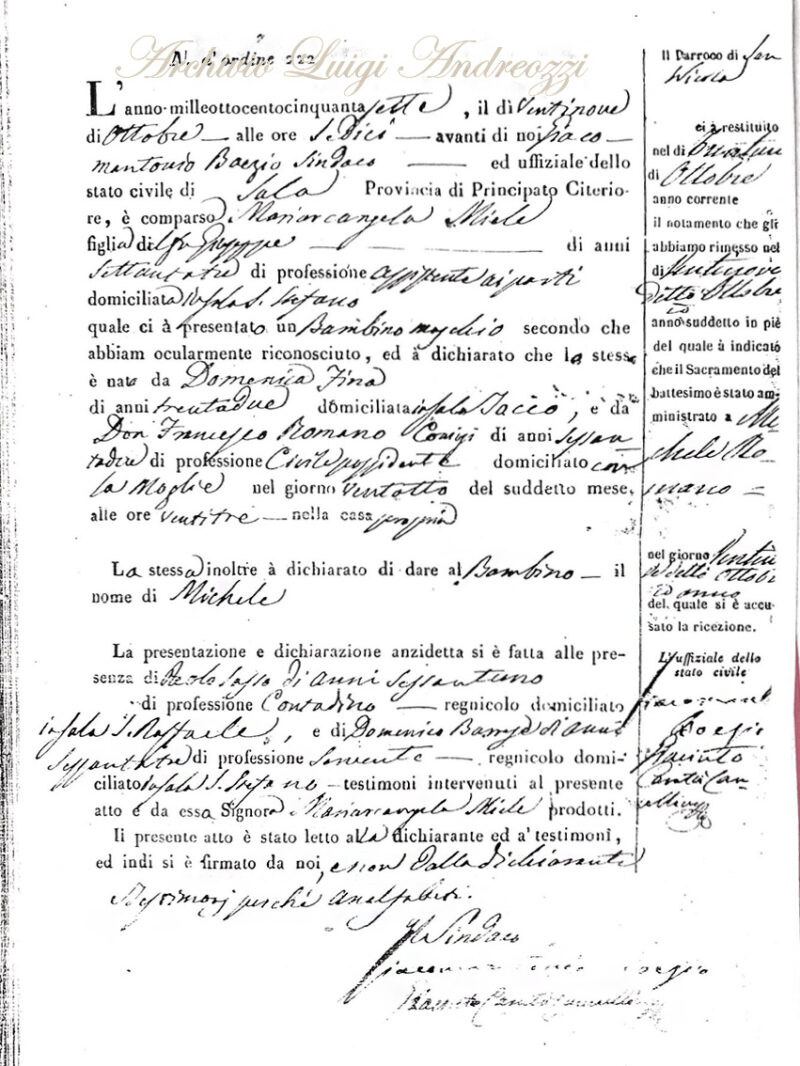 Archivio Luigi Andreozzi
N. d'ordine 222
L'anno milleottocentocinquantasette, il dì Ventinove
di Ottobre — alle ore Sedici — avanti di noi Giaco-
mantonio Boezio Sindaco — ed uffiziale dello
stato civile di Sala Provincia di Principato Citerio-
re, è comparsa Mariarcangela Miele
figlia di Giuseppe — di anni
Settantatre di professione assistente ai parti
domiciliata in Sala S. Stefano
quale ci à presentato un Bambino maschio secondo che
abbiam ocularmente riconosciuto, ed à dichiarato che lo stesso
è nato da Domenica Fina
di anni trentadue domiciliata in Sala, e da
Don Francesco Romano di anni Sessan
tadue di professione Civile possidente domiciliato con
la Moglie nel giorno ventotto del suddetto mese,
alle ore ventitre — nella casa propria
La stessa inoltre à dichiarato di dare al Bambino — il
nome di Michele
La presentazione e dichiarazione anzidetta si è fatta alle pre-
senza di Paolo Sasso di anni Sessantuno
di professione Contadino — regnicolo domiciliato
in Sala S. Raffaele, e di Domenico di anni
Sessantatre di professione Servente — regnicolo domi-
ciliato in Sala S. Stefano — testimoni intervenuti al presente
atto e da essa Signora Mariarcangela Miele prodotti.
Il presente atto è stato letto alla dichiarante ed a' testimoni,
ed indi si è firmato da noi, e non dalla dichiarante
e testimonj perché analfabeti.
Il Sindaco
Giacomantonio Boezio
Il Parroco di San
Nicola
ci à restituito
nel dì
di Ottobre
anno corrente
il notamento che gli
abbiamo rimesso nel
dì Ventinove
detto Ottobre
anno suddetto in piè
del quale à indicato
che il Sacramento del
battesimo è stato am-
ministrato a Mi-
chele Ro-
mano =
nel giorno
detto Ottobre
anno
del quale si è accu-
sato la ricezione.
L'uffiziale dello
stato civile
Boezio
Giacinto